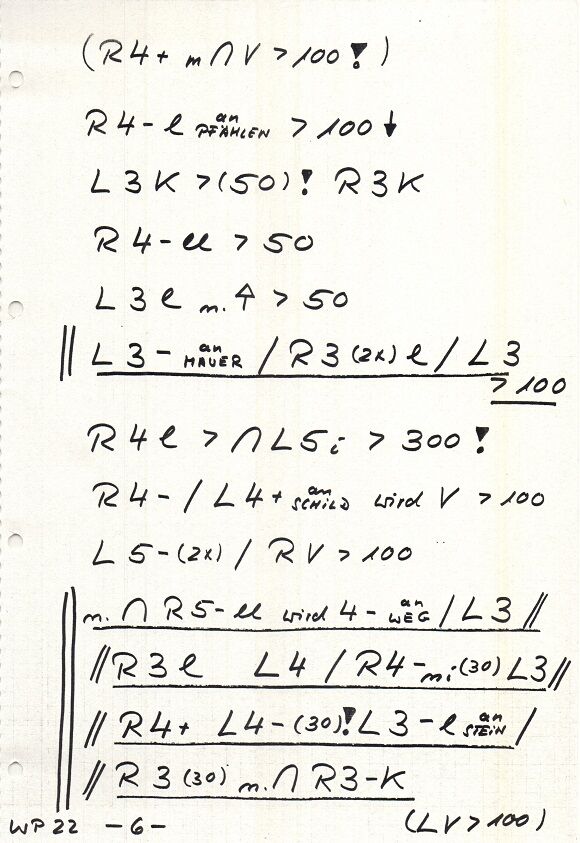 (R4+ m ∩ V > 100 !)
R4-l an PFÄHLEN > 100 ↓
L3K > (50) ! R3K
R4-ll > 50
L3l n. ↑ > 50
|| L3- an MAUER / R3 (2x) l / L3
> 100
R4l > ∩ L5i > 300 !
R4- / L4+ an SCHILD wird V > 100
L5-(2x) / RV > 100
n. ∩ R5-ll wird 4- an WEG / L3 //
// R3l L4 / R4-ni (30) L3 //
// R4+ L4-(30)! L3-l an STEIN /
// R3 (30) n. ∩ R3-K
WP22 -6- (LV > 100)